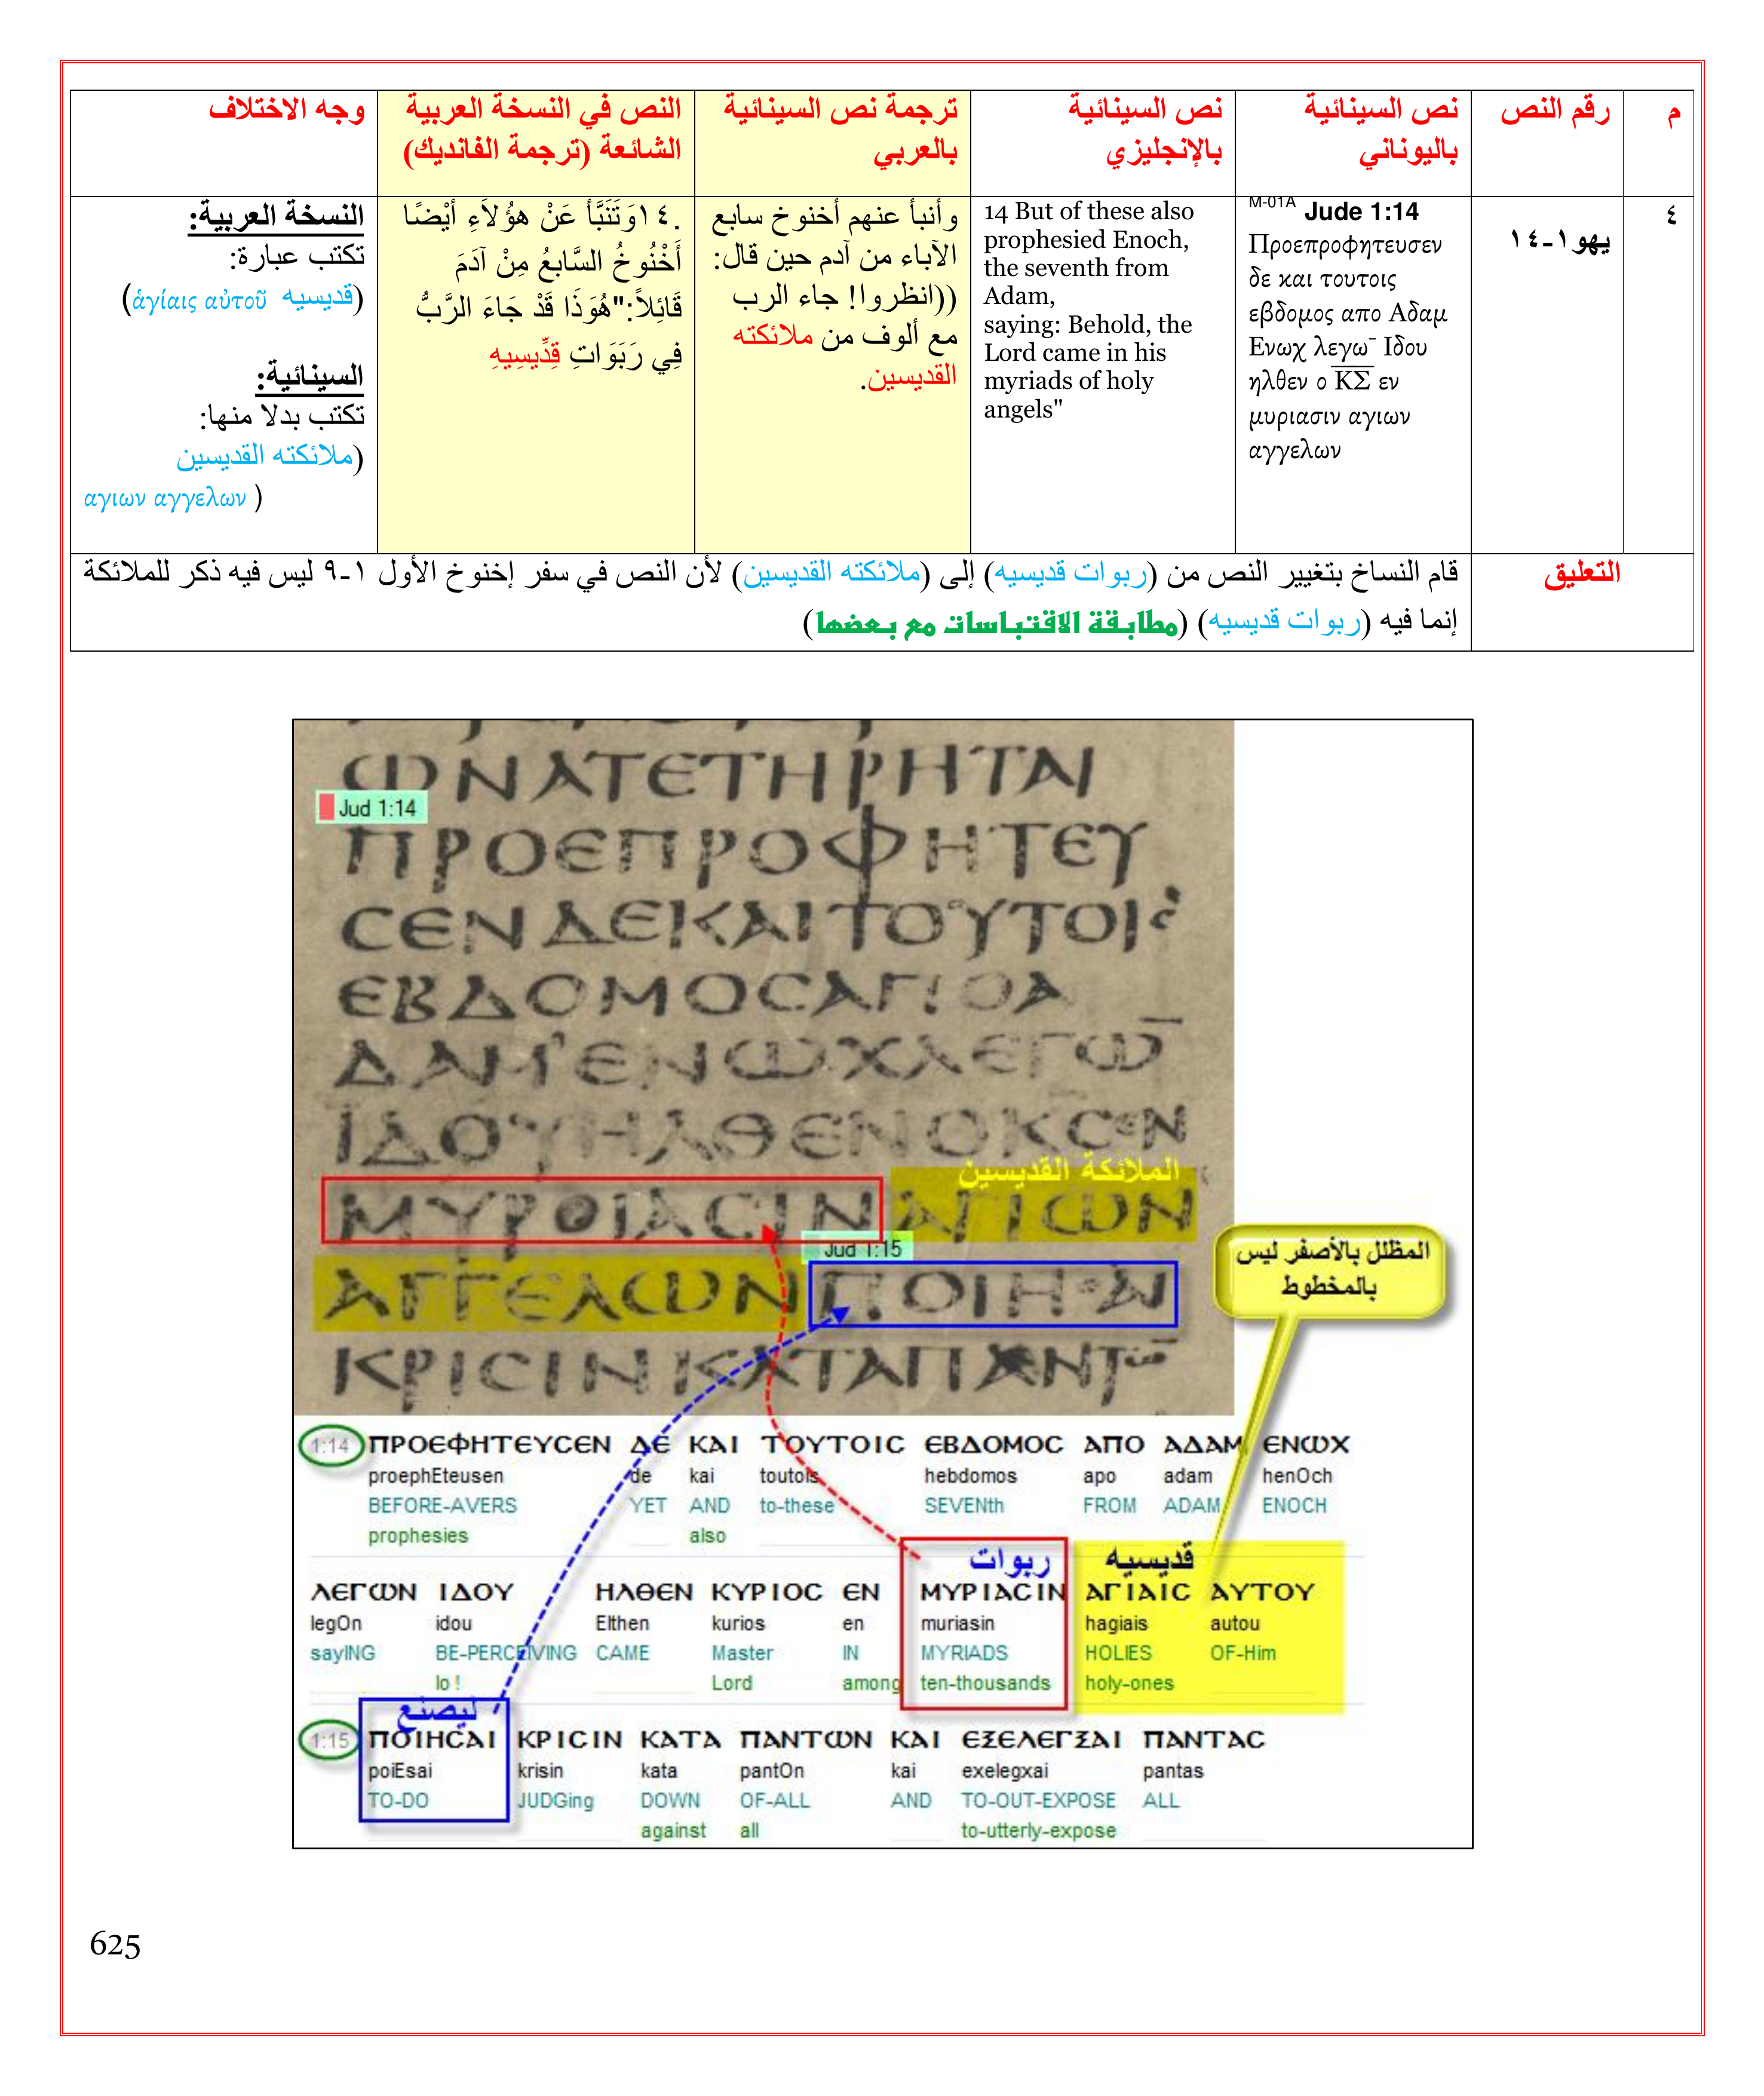 م
رقم النص
نص السينائية
باليوناني
نص السينائية
بالإنجليزي
ترجمة نص السينائية
بالعربي
النص في النسخة العربية
الشائعة (ترجمة الفانديك)
وجه الاختلاف
٤
يهو١-١٤
M-01A Jude 1:14
Προεπροφητευσεν
δε και τουτοις
εβδομος απο Αδαμ
Ενωχ λεγω¯ Ιδου
ηλθεν ο Κ̅Σ̅ εν
μυριασιν αγιων
αγγελων
14 But of these also
prophesied Enoch,
the seventh from
Adam,
saying: Behold, the
Lord came in his
myriads of holy
angels"
وأنبأ عنهم أخنوخ سابع
الآباء من آدم حين قال:
((انظروا! جاء الرب
مع ألوف من ملائكته
القديسين.
.١٤وَتَنَبَّأَ عَنْ هؤُلاَءِ أَيْضًا
أَخْنُوخُ السَّابعُ مِنْ آدَمَ
قَائِلاً:"هُوَذَا قَدْ جَاءَ الرَّبُّ
فِي رَبَوَاتِ قِدِّيسِيهِ
النسخة العربية:
تكتب عبارة:
(قديسيه ἁγίαις αὐτοῦ)
السينائية:
تكتب بدلا منها:
(ملائكته القديسين
αγιων αγγελων )
التعليق
قام النساخ بتغيير النص من (ربوات قديسيه) إلى (ملائكته القديسين) لأن النص في سفر إخنوخ الأول ١-٩ ليس فيه ذكر للملائكة
إنما فيه (ربوات قديسيه) (مطابقة الاقتباسات مع بعضها)
ⲰΝΑΤΕΤΗΡΗΤΑΙ
Jud 1:14
ΠΡΟΕΠΡΟΦΗΤΕΥ
ϹΕΝΔΕΚΑΙΤΟΥΤΟΙϹ
ΕΒΔΟΜΟϹΑΠΟΑ
ΔΑΜ'ΕΝⲰΧΛΕΓⲰ̅
ΪΔΟΥΗΛΘΕΝΟΚϹΕΝ
الملائكة القديسين
ΜΥΡΟΙΑϹΙΝ ΑΓΙⲰΝ
Jud 1:15
ΑΓΓΕΛⲰΝ ΠΟΙΗϹΑΙ
ΚΡΙϹΙΝΚΑΤΑΠΑΝΤⲰ̅
المظلل بالأصفر ليس
بالمخطوط
1:14 ΠΡΟΕΦΗΤΕΥϹΕΝ ΔΕ ΚΑΙ ΤΟΥΤΟΙϹ ΕΒΔΟΜΟϹ ΑΠΟ ΑΔΑΜ ΕΝⲰΧ
proephEteusen de kai toutois hebdomos apo adam henOch
BEFORE-AVERS YET AND to-these SEVENth FROM ADAM ENOCH
prophesies also
ربوات قديسيه
ΛΕΓⲰΝ ΙΔΟΥ ΗΛΘΕΝ ΚΥΡΙΟϹ ΕΝ ΜΥΡΙΑϹΙΝ ΑΓΙΑΙϹ ΑΥΤΟΥ
legOn idou Elthen kurios en muriasin hagiais autou
sayING BE-PERCEIVING CAME Master IN MYRIADS HOLIES OF-Him
lo ! Lord among ten-thousands holy-ones
ليصنع
1:15 ΠΟΙΗϹΑΙ ΚΡΙϹΙΝ ΚΑΤΑ ΠΑΝΤⲰΝ ΚΑΙ ΕΞΕΛΕΓΞΑΙ ΠΑΝΤΑϹ
poiEsai krisin kata pantOn kai exelegxai pantas
TO-DO JUDGing DOWN OF-ALL AND TO-OUT-EXPOSE ALL
against all to-utterly-expose
625